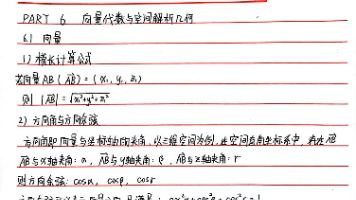 PART 6 向量代数与空间解析几何
6.1 向量
1) 模长计算公式
若向量AB (AB) = (x₁, y₁, z₁)
则 |AB| = √x²+y²+z²
2) 方向角与方向余弦
方向角即向量与坐标轴的夹角. 以三维空间为例, 在空间直角坐标系中, 若
AB与x轴夹角: α, AB与y轴夹角: β, AB与z轴夹角: r
则方向余弦: cosα, cosβ, cosr